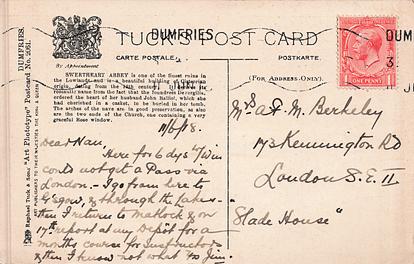 DUMFRIES
TUCK'S POST CARD
DUMFRIES
CARTE POSTALE.
POSTKARTE.
By Appointment
(FOR ADDRESS ONLY.)
SWEETHEART ABBEY is one of the finest ruins in
the Lowlands and is a beautiful building of Cistercian
origin, dating from the 13th century. It
romantic name from the fact that the foundress Devorgilla,
carried the heart of her husband John Baliol, which she
had cherished in a casket, to be buried in her tomb.
The arches of the nave are in good preservation, as also
are the two ends of the Church, one containing a very
graceful Rose window.
DUMFRIES.
Raphael Tuck & Sons' "Art Phototype" Postcard No. 2561.
ART PUBLISHERS TO THEIR MAJESTIES THE KING & QUEEN
ONE PENNY
11/6/18.
Dear Nan,
Here for 6 dys & Win
could not get a Pass via
London — I go from here to
Glsgow, & through the Lakes —
then I return to Matlock & on
17th report at my Depôt for a
months course for Instructors
& then I know not what. Yrs Jim.
Mrs A. F. M. Berkeley
173 Kennington Rd
London S.E. 11
"Slade House"